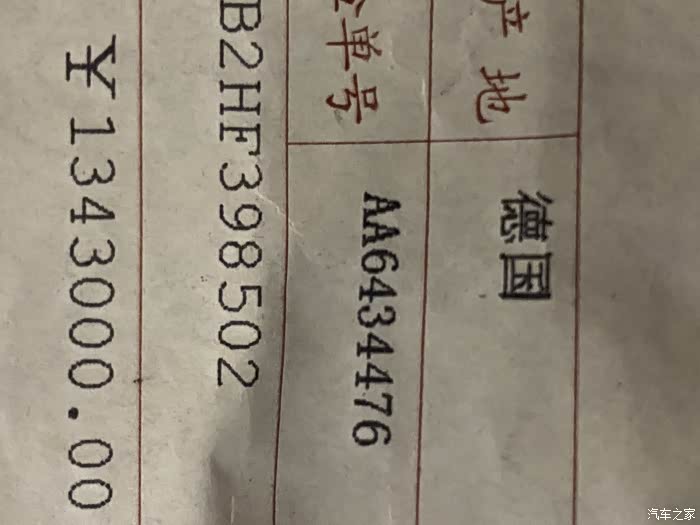 产地 德国
单号 AA6434476
B2HF398502
¥1343000.00
汽车之家